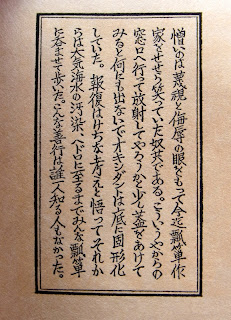 憎いのは蔑視と侮辱の眼をもって今迄瓢箪作
家をせせら笑っていた奴共である。こういうやからの
窓口へ行って放射してやろうかと少し蓋をあけて
みると何にも出ないでオキシダンは底に固形化
していた。報復はけちな考えと悟ってそれか
らは大気、海水の汚染、ヘドロに至るまでみんな瓢箪
に呑ませて歩いた。こんな善行は誰一人知る人もなかった。